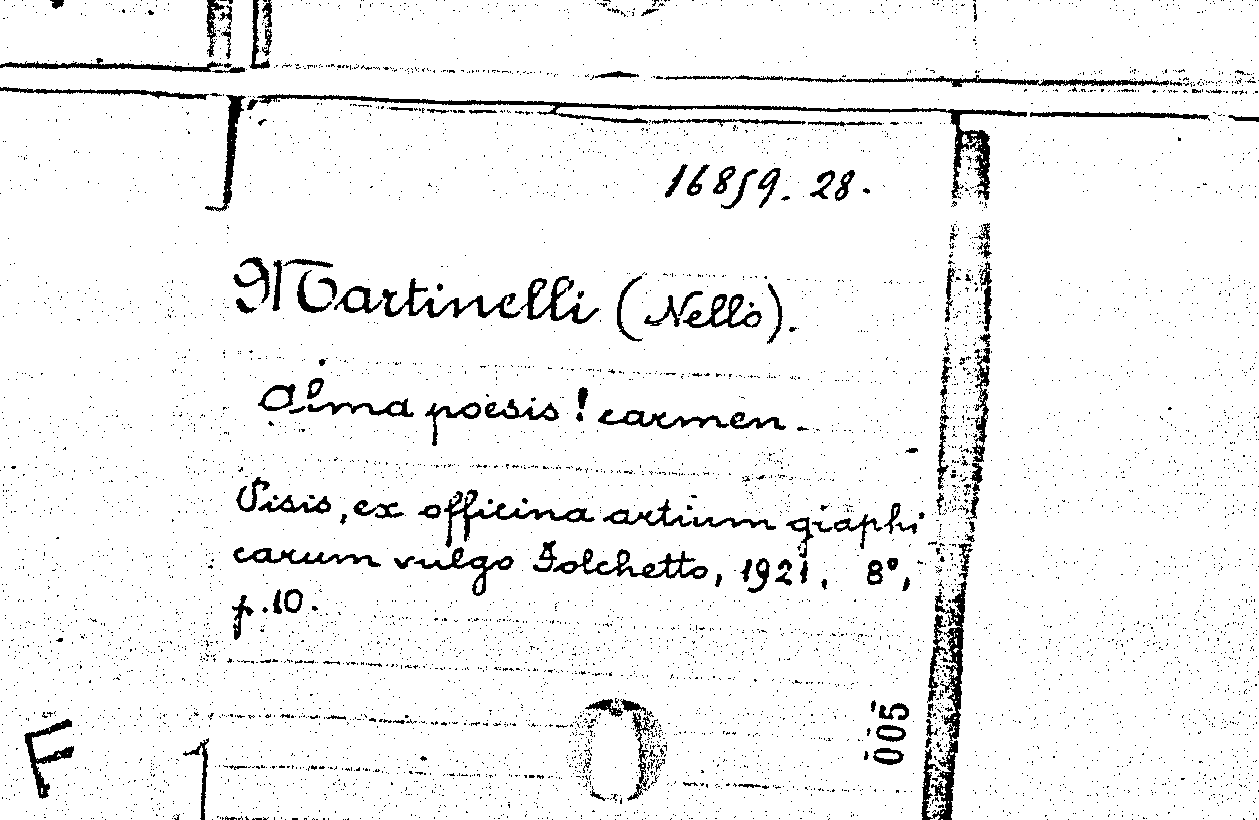 16859. 28.
Martinelli (Nello).
Alma poësis! carmen.
Pisis, ex officina artium graphi
carum vulgo Folchetto, 1921. 8°,
p. 10.
005
F